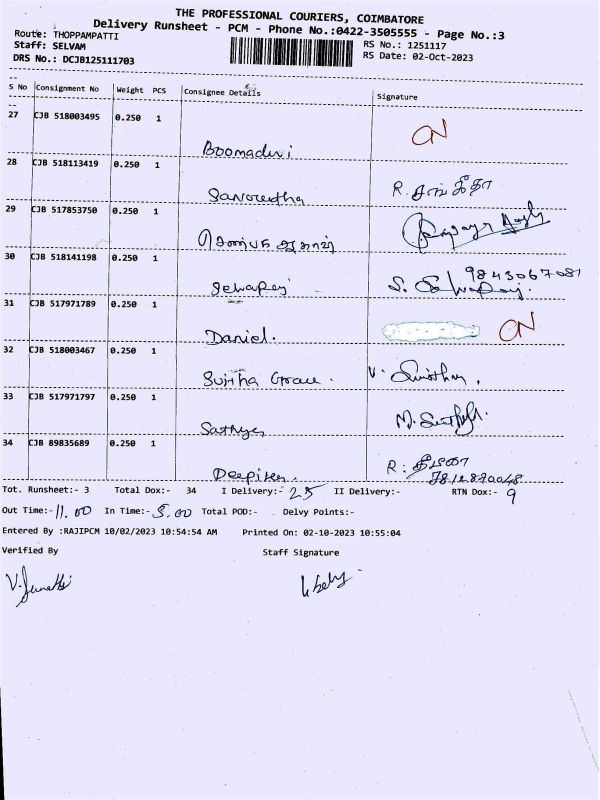 THE PROFESSIONAL COURIERS, COIMBATORE
Delivery Runsheet - PCM - Phone No.:0422-3505555 - Page No.:3
Route: THOPPAMPATTI RS No.: 1251117
Staff: SELVAM RS Date: 02-Oct-2023
DRS No.: DCJB125111703
S No Consignment No Weight PCS Consignee Details Signature
27 CJB 518003495 0.250 1
Boomadevi CN
28 CJB 518113419 0.250 1
R. சங்கீதா
29 CJB 517853750 0.250 1
செண்பக
30 CJB 518141198 0.250 1
9843067081
Selvaraj S. Selvaraj
31 CJB 517971789 0.250 1
Daniel. CN
32 CJB 518003467 0.250 1
Sujitha Grace. V.
33 CJB 517971797 0.250 1
Sathya M.
34 CJB 89835689 0.250 1
Deepika. R: தீபிகா
7812820048
Tot. Runsheet:- 3 Total Dox:- 34 I Delivery:- 25 II Delivery:- RTN Dox:- 9
Out Time:- 11.00 In Time:- 5.00 Total POD:- Delvy Points:-
Entered By :RAJIPCM 10/02/2023 10:54:54 AM Printed On: 02-10-2023 10:55:04
Verified By Staff Signature